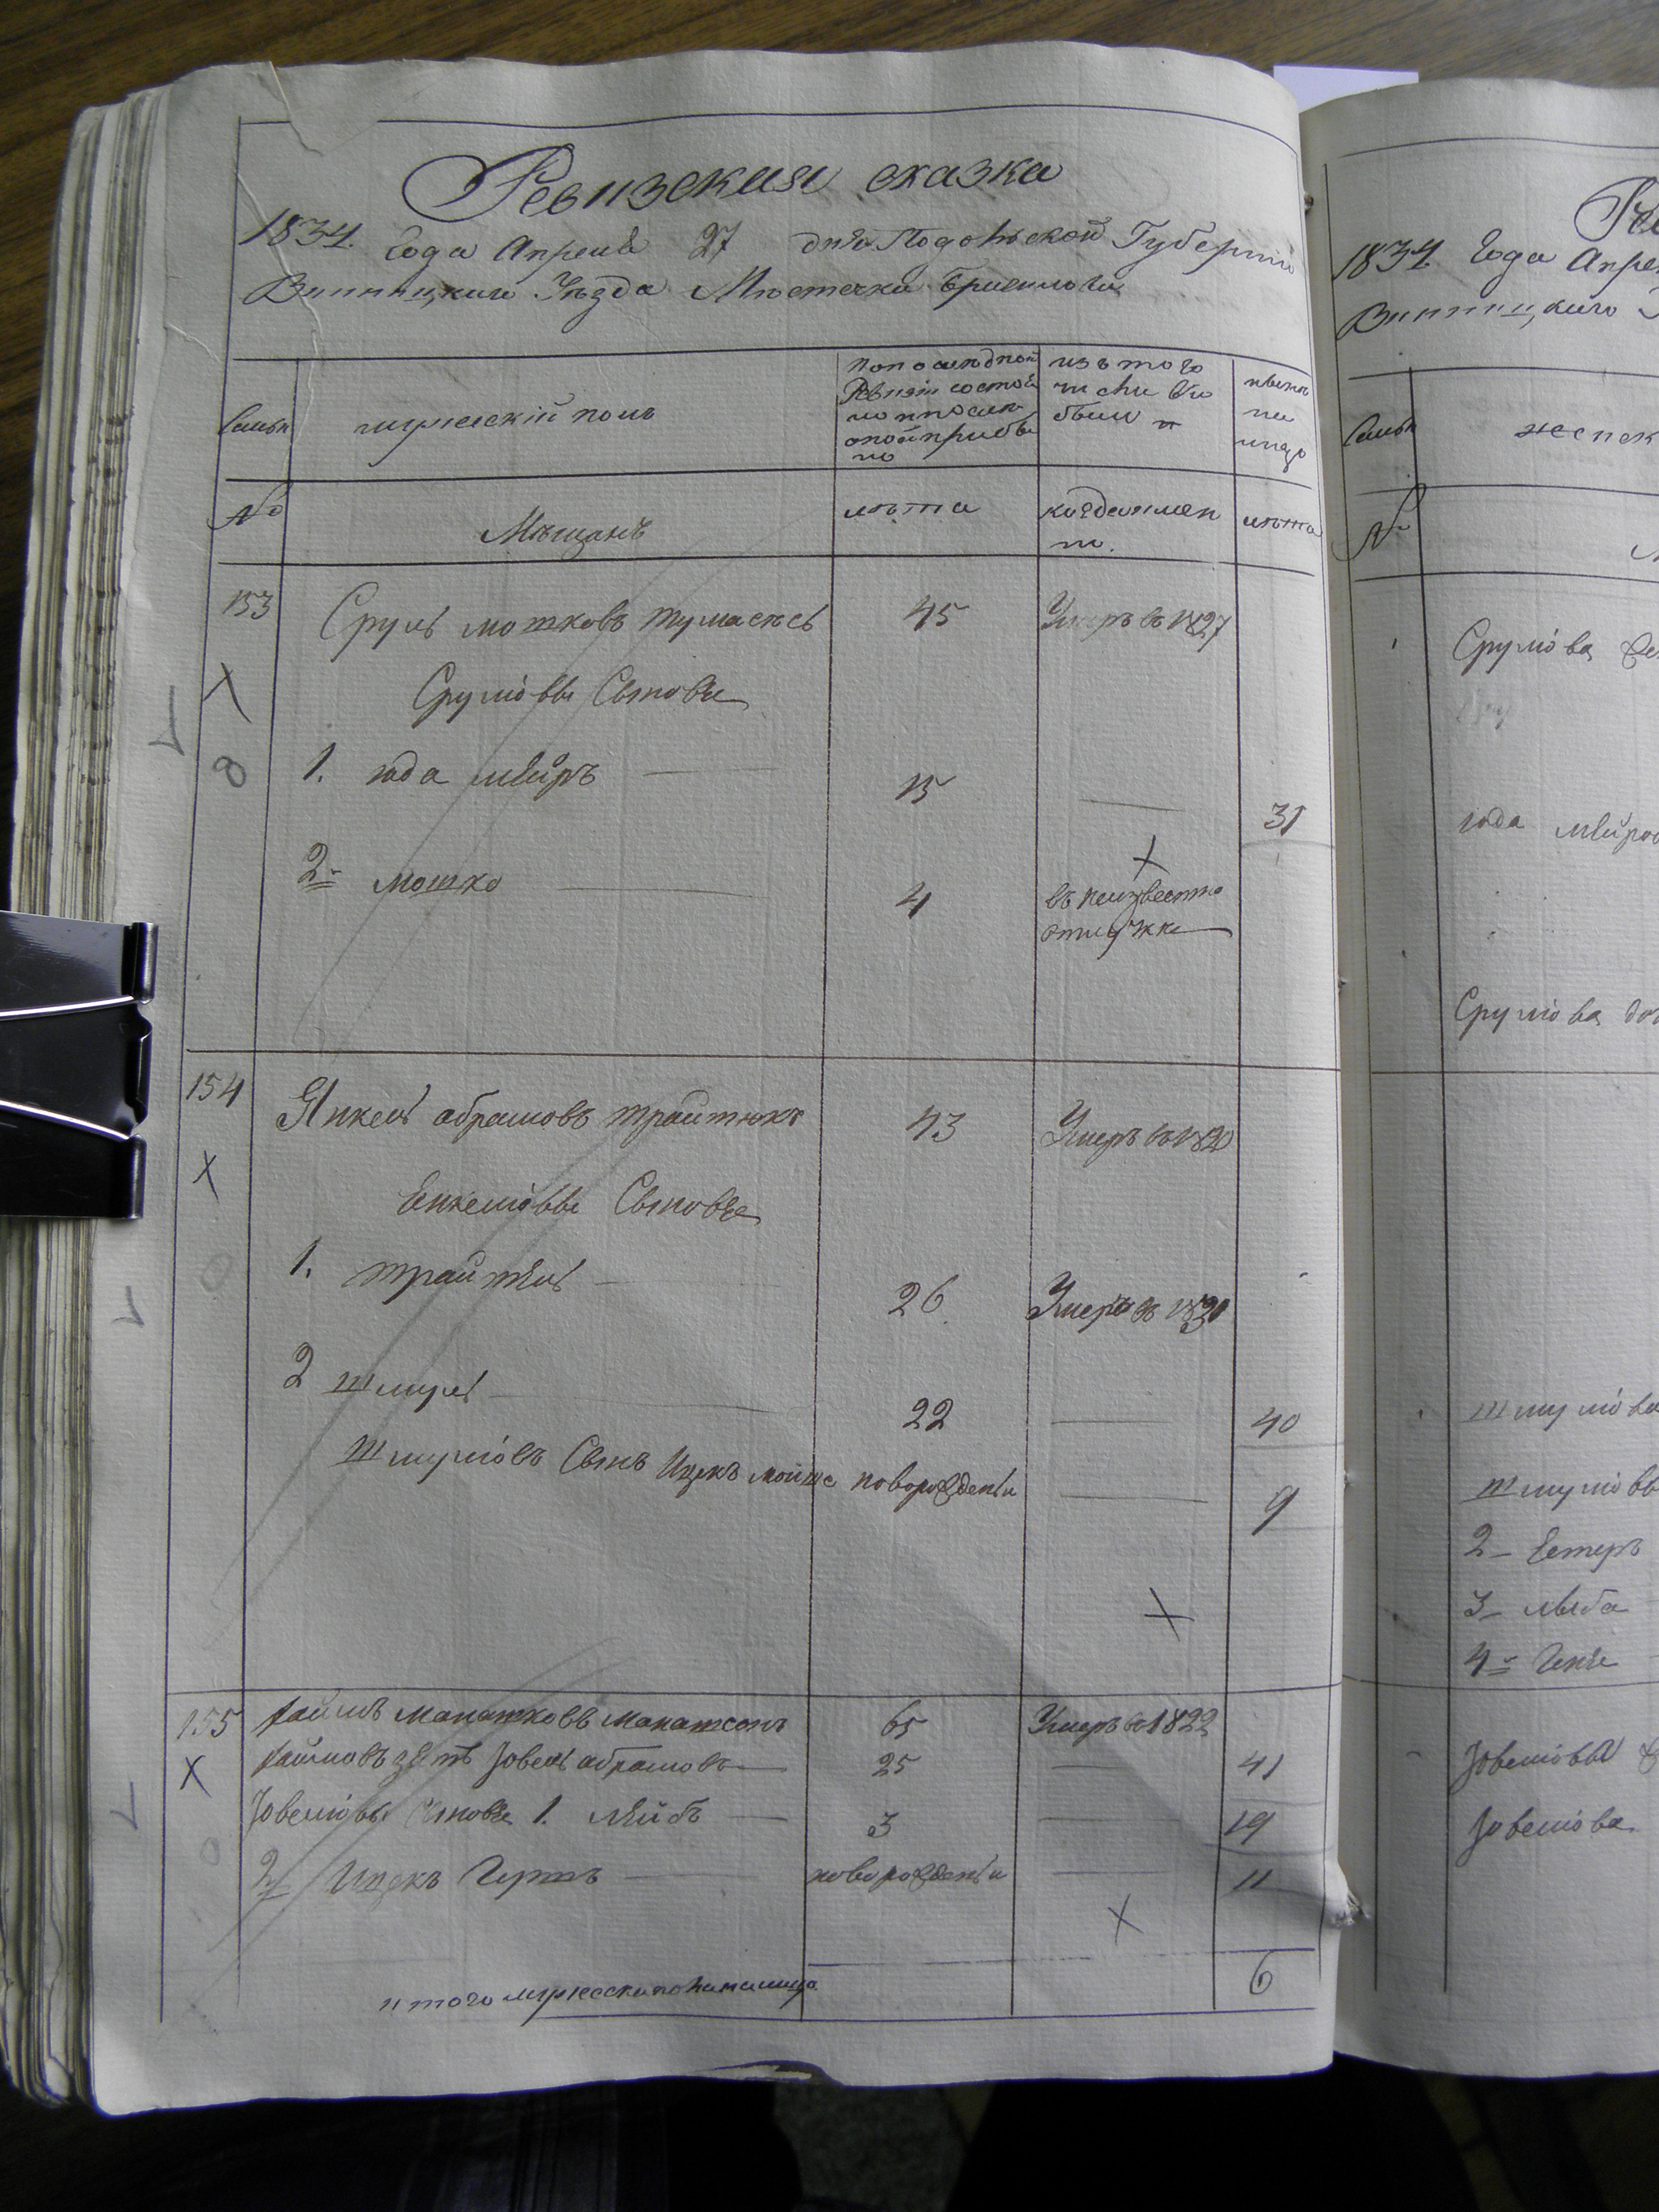 Ревизская сказка
1834. Года Апреля 27 дня Подольской Губернии
Винницкаго Уезда Местечка Браилова
Семьи
мужескій полъ
по последной Ревизіи состояло и после оной прибыло
изъ того числа выбыло
ныне на лицо
№
Мещанъ
лета
когда именно.
лета
153
Сруль мошковъ
45
Умеръ въ 1827
Срулiовы Сыновья
1. юда мейръ
15
31
2. мошко
4
въ неизвестно отлучке
154
Янкель абрамовъ
43
Умеръ въ 1820
Енкелiовы Сыновья
1. трайтель
26
Умеръ въ 1831
2 шмуль
22
40
Шмулiовъ Сынъ Ицекъ мойше новорожденый
9
155
хаимъ
65
Умеръ въ 1822
хаимовъ зять Iовель абрамовъ
25
41
Iовелiовы Сыновья 1. лейбъ
3
19
2. Ицекъ Гершъ
новорожденый
11
итого мужеска пола на лицо
6
1834 Года Апре
Винницкаго
Семьи
женск
№
Срулiова
юда мейров
Срулiова доч
шмулiова
шмулiовы
2 - Естеръ
3 - лейба
4 -
Iовелiова
Iовелiова